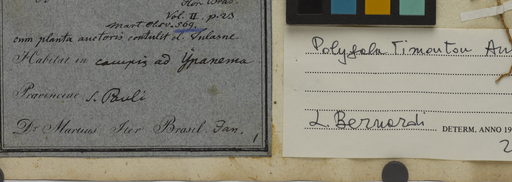 Flor. Bras.
Vol. II. p. 23
Mart Obs. 569.
cum planta auctoris contulit d. Tulasne
Habitat in campis ad Ypanema
Provinciae S. Pauli
Dr Martius Iter Brasil. Jan.
Polygala Timoutou Au
L. Bernardi DETERM. ANNO 19